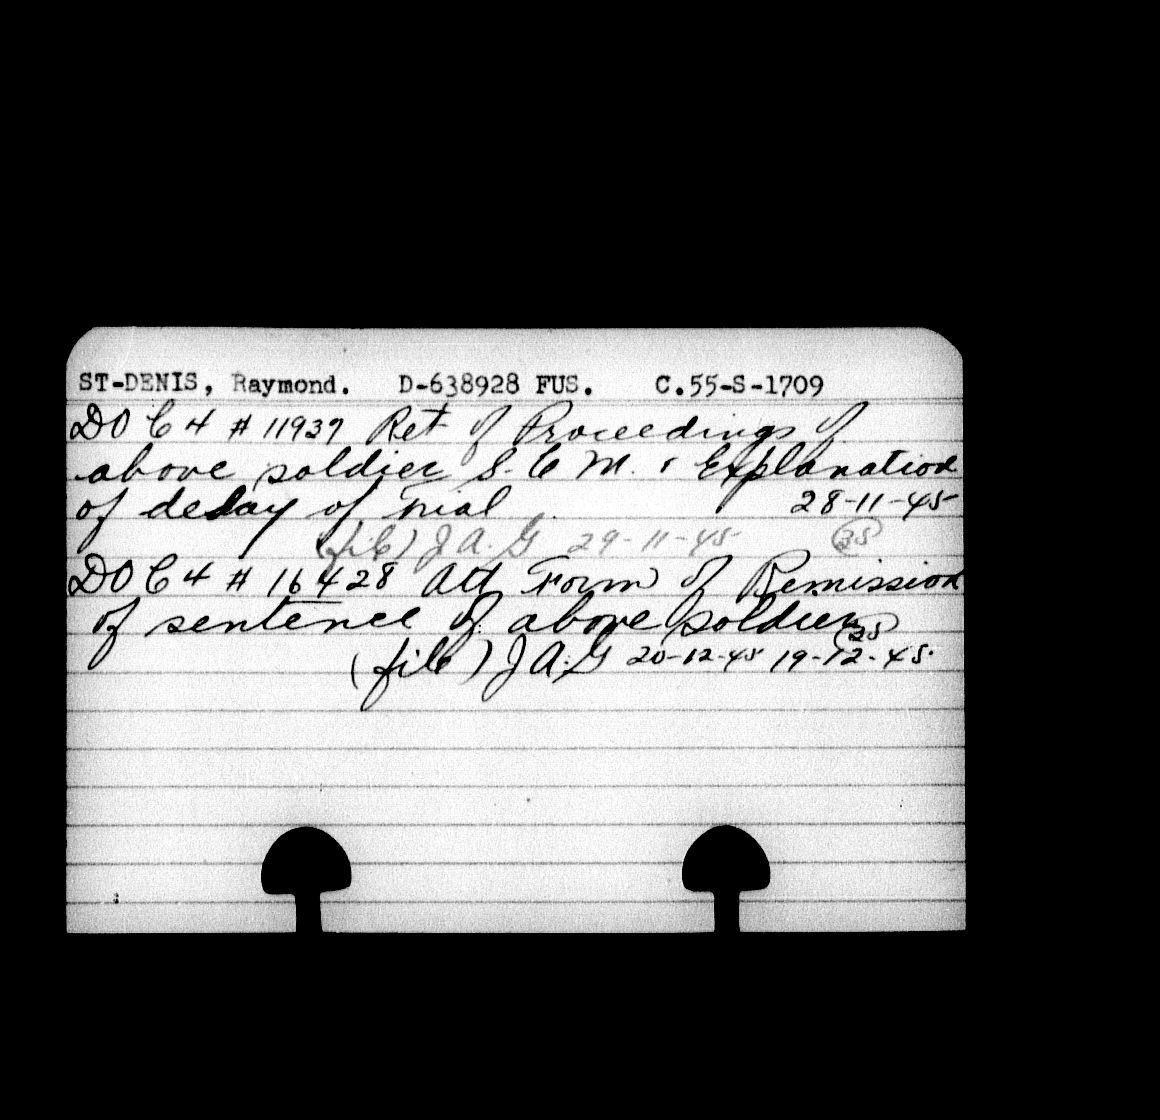 ST-DENIS, Raymond. D-638928 FUS. C.55-S-1709
DOC 4 # 11937 Ret of Proceedings of
above soldier S. C M. & Explanation
of delay of Trial 28-11-45
(file) J A. G 29-11-45
DOC 4 # 16428 Att Form of Remission
of sentence of above soldier
(file) J A. G 20-12-45 19-12-45.